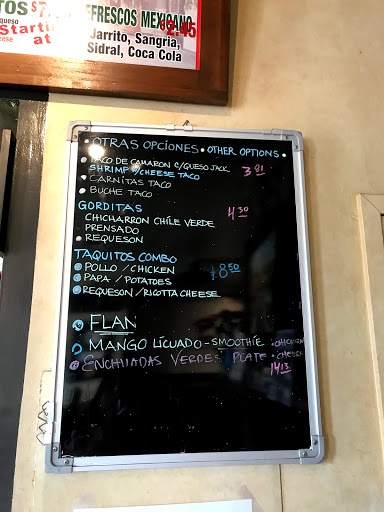 TOS $7
REFRESCOS MEXICANO
queso
$2.45
Starti
Jarrito, Sangria,
at
Sidral, Coca Cola
OTRAS OPCIONES • OTHER OPTIONS •
• TACO DE CAMARON C/QUESO JACK 3.81
SHRIMP W/CHEESE TACO
• CARNITAS TACO
• BUCHE TACO
GORDITAS 4.30
CHICHARRON CHILE VERDE
PRENSADO
• REQUESON
TAQUITOS COMBO
• POLLO / CHICKEN 8.50
• PAPA / POTATOES
• REQUESON / RIGOTTA CHEESE
• FLAN
• MANGO LICUADO - SMOOTHIE
• CHICKEN
• ENCHILADAS VERDES PLATE • CHEESE
14.13